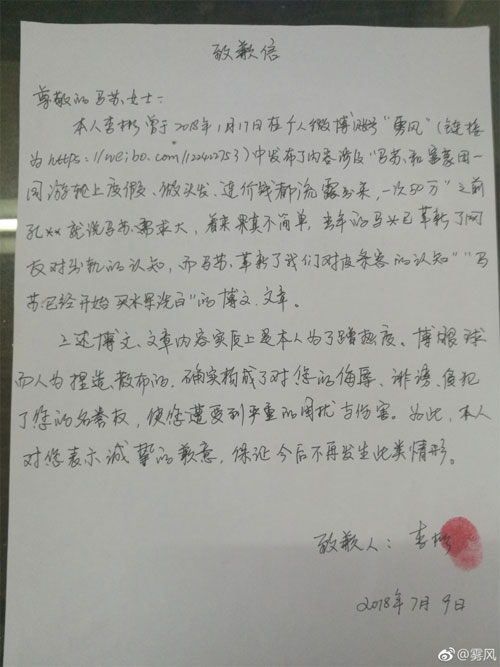 致歉信
尊敬的马苏女士:
本人李彬曾于2018年1月17日在个人微博账号"雾风"(链接
为https://weibo.com/122402753)中发布了内容涉及"马苏和富豪因一
同游轮上度假、做头发、连价钱都流露出来,一次50万""之前
孔**就说马苏需求大,看来果真不简单,当年的马*已革新了网
友对出轨的认知,而马苏革新了我们对皮条客的认知""马
苏已经开始买水军洗白"的博文、文章。
上述博文、文章内容实质上是本人为了蹭热度、博眼球
而人为捏造、散布的,确实构成了对您的侮辱、诽谤,侵犯
了您的名誉权,使您遭受到严重的困扰与伤害。为此,本人
对您表示诚挚的歉意,保证今后不再发生此类情形。
致歉人:李彬
2018年7月9日
@雾风